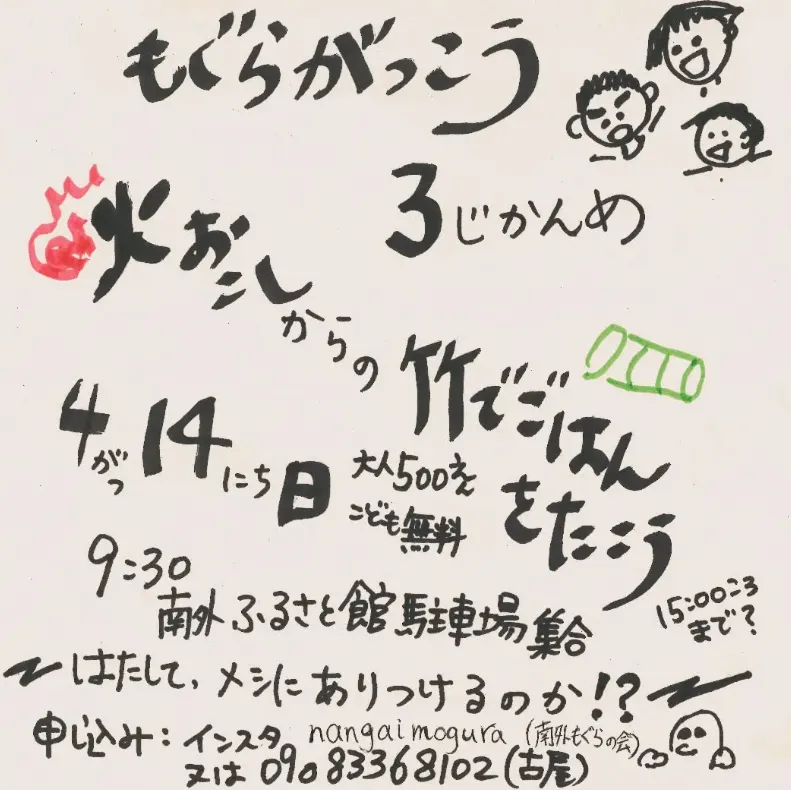 もぐらがっこう
3じかんめ
火おこしからの
竹でごはん
をたこう
4がつ14にち日
大人500えん
こども無料
9:30
南外ふるさと館駐車場集合
15:00ころ
まで?
はたして、メシにありつけるのか!?
申し込み:インスタ nangaimogura (南外もぐらの会)
又は 09083368102(古屋)